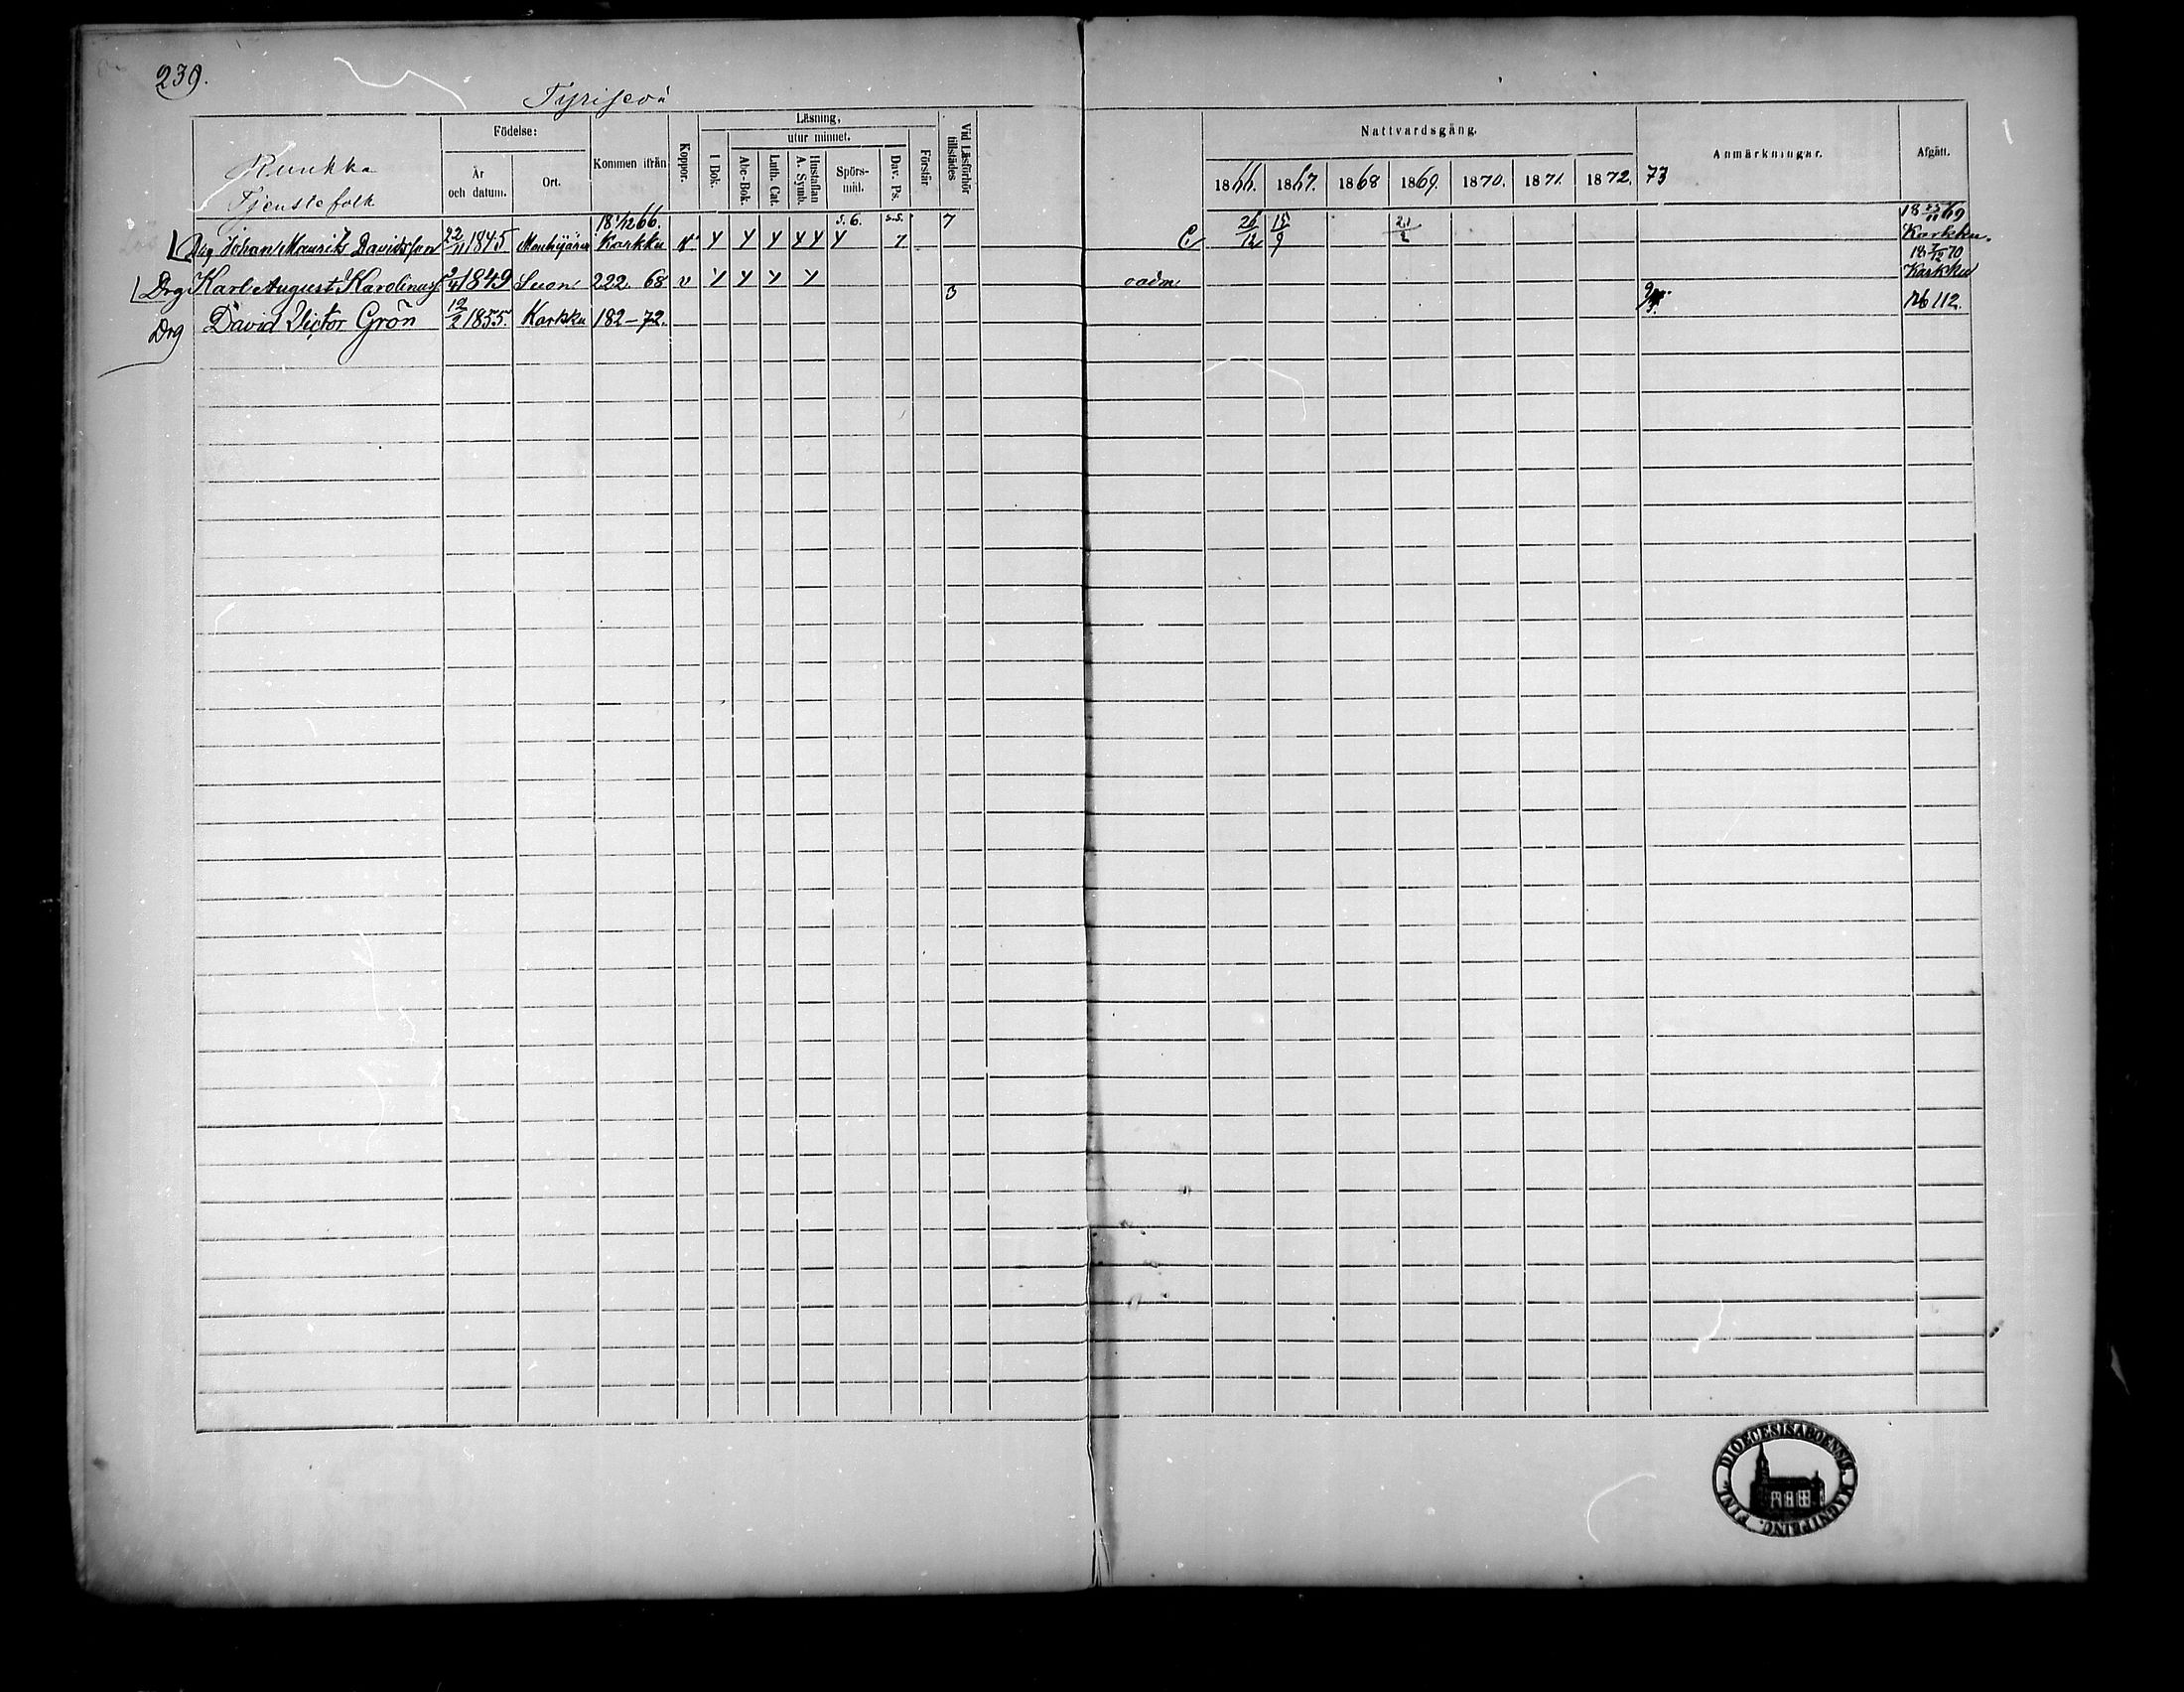 239.
Tyrisevä
Runkka
Tjenstefolk
Födelse:
År och datum.
Ort.
Kommen ifrån
Koppor.
Läsning,
utur minnet.
I Bok.
Abc-Bok.
Luth. Cat.
Hustaflan A. Symb.
Spörs-mål.
Dav. Ps.
Förstår
Vid Läsförhör tillstädes
Nattvardsgång.
1866. 1867. 1868 1869. 1870. 1871. 1872. 73
Anmärkningar.
Afgått.
Drg Johan Mauritz Davidsson 22/11 1845 Mouhijärvi 18 1/12 66. Karkku v Y Y Y Y Y Y s. 6. 7 7 C 26/12 15/9 21/2 18 23/11 69 Karkku.
Drg Karl August Karolinus 2/4 1849 Suon 222. 68 v Y Y Y Y oadm 18 7/12 70 Karkku
Drg David Victor Grön 12/2 1855. Karkku 182-72. 3 26 112.
DIOECESIS ABOENSIS. MAGNI PRINC. FINL.